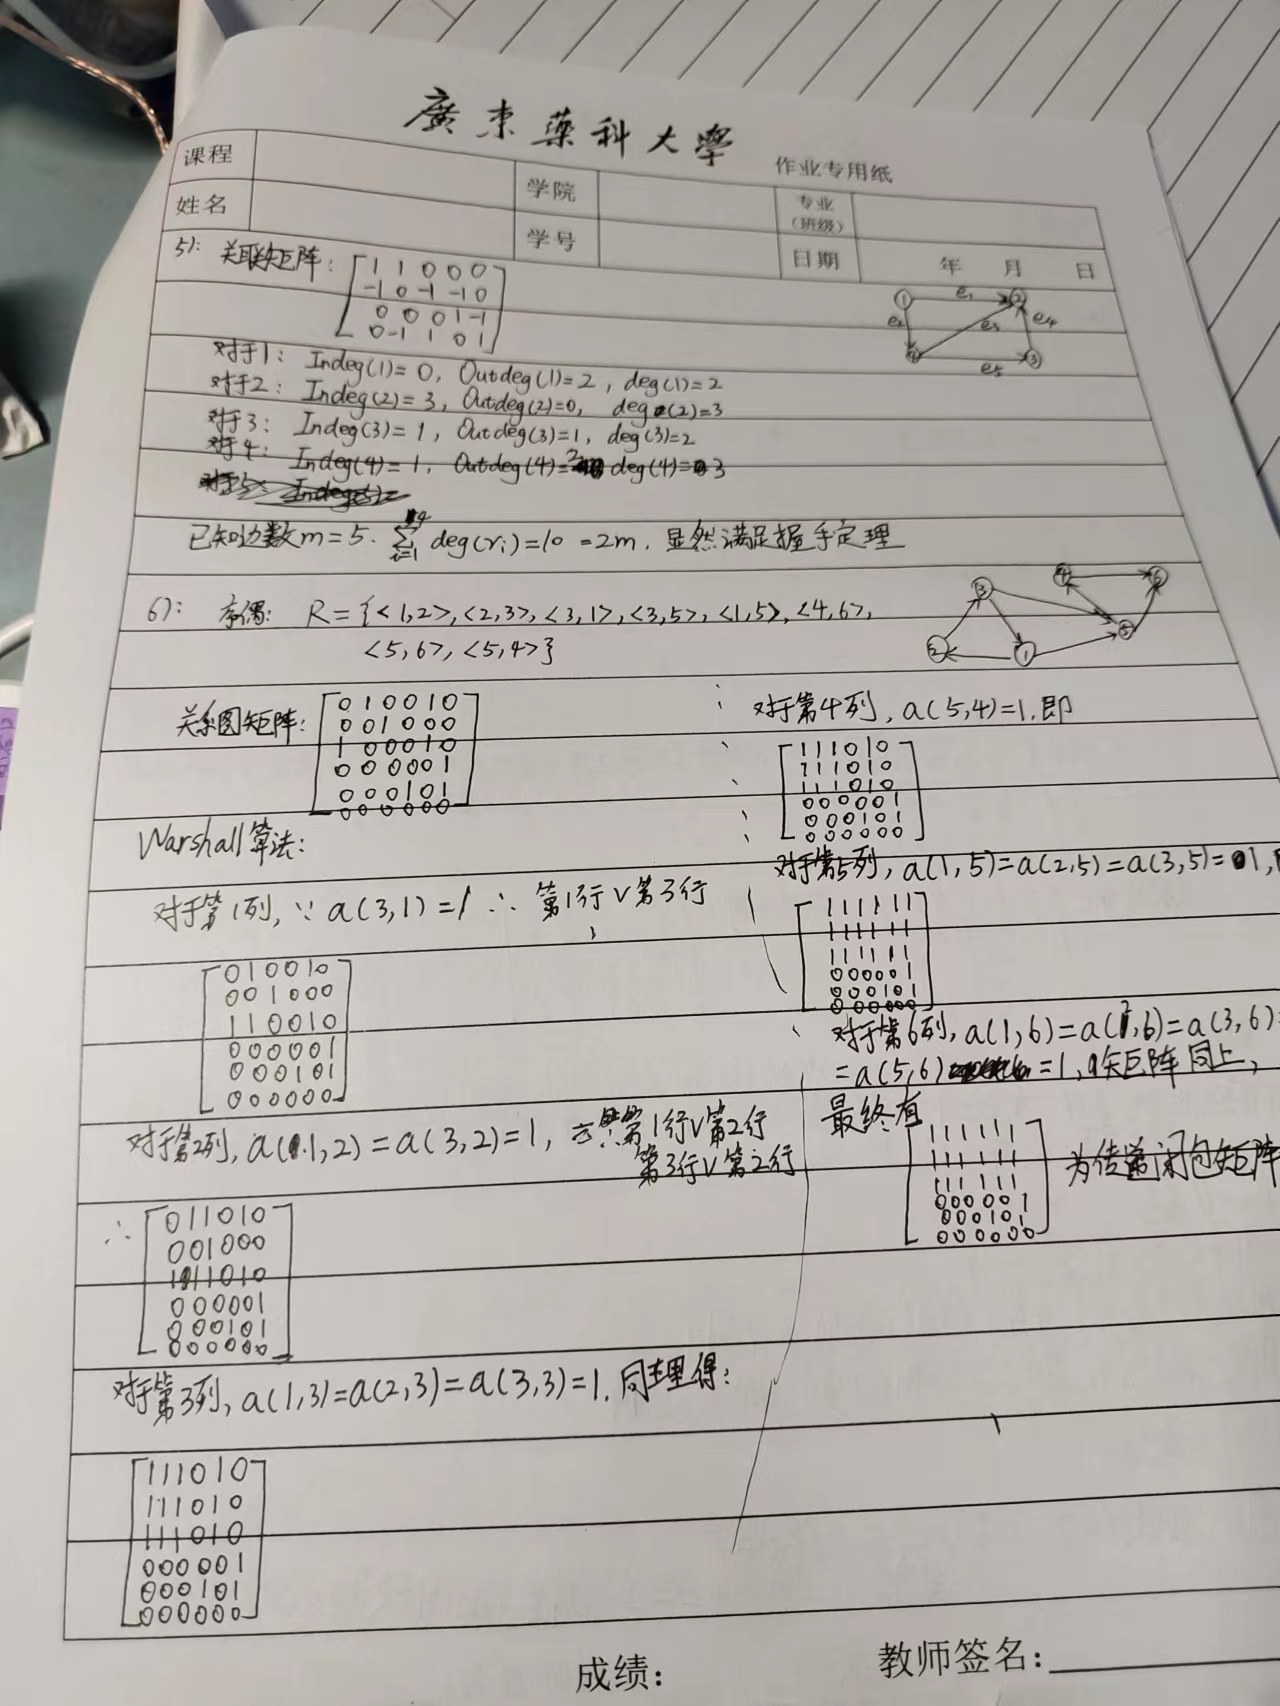 廣東藥科大學 作业专用纸
课程 学院 专业(班级)
姓名 学号 日期 年 月 日
5): 关联矩阵:
1 1 0 0 0
-1 0 -1 -1 0
0 0 0 1 -1
0 -1 1 0 1
① e₁ ②
e₂ e₃ e₄
④ e₅ ③
对于1: Indeg(1)=0, Outdeg(1)=2, deg(1)=2
对于2: Indeg(2)=3, Outdeg(2)=0, deg(2)=3
对于3: Indeg(3)=1, Outdeg(3)=1, deg(3)=2
对于4: Indeg(4)=1, Outdeg(4)=2 deg(4)=3
已知边数m=5. ∑ i=1 4 deg(vᵢ)=10 =2m. 显然满足握手定理
6): 序偶: R={<1,2>,<2,3>,<3,1>,<3,5>,<1,5>,<4,6>,
<5,6>,<5,4>}
③ ④ ⑥
② ① ⑤
关系图矩阵:
0 1 0 0 1 0
0 0 1 0 0 0
1 0 0 0 1 0
0 0 0 0 0 1
0 0 0 1 0 1
0 0 0 0 0 0
Warshall算法:
对于第1列, ∵ a(3,1)=1 ∴ 第1行∨第3行
0 1 0 0 1 0
0 0 1 0 0 0
1 1 0 0 1 0
0 0 0 0 0 1
0 0 0 1 0 1
0 0 0 0 0 0
对于第2列, a(1,2)=a(3,2)=1, 第1行∨第2行
第3行∨第2行
∴
0 1 1 0 1 0
0 0 1 0 0 0
1 1 1 0 1 0
0 0 0 0 0 1
0 0 0 1 0 1
0 0 0 0 0 0
对于第3列, a(1,3)=a(2,3)=a(3,3)=1. 同理得:
1 1 1 0 1 0
1 1 1 0 1 0
1 1 1 0 1 0
0 0 0 0 0 1
0 0 0 1 0 1
0 0 0 0 0 0
对于第4列, a(5,4)=1,即
1 1 1 0 1 0
1 1 1 0 1 0
1 1 1 0 1 0
0 0 0 0 0 1
0 0 0 1 0 1
0 0 0 0 0 0
对于第5列, a(1,5)=a(2,5)=a(3,5)=1,
1 1 1 1 1 1
1 1 1 1 1 1
1 1 1 1 1 1
0 0 0 0 0 1
0 0 0 1 0 1
0 0 0 0 0 0
对于第6列, a(1,6)=a(2,6)=a(3,6)
=a(5,6) =1, 矩阵同上,
最终有
1 1 1 1 1 1
1 1 1 1 1 1
1 1 1 1 1 1
0 0 0 0 0 1
0 0 0 1 0 1
0 0 0 0 0 0
为传递闭包矩阵
成绩: 教师签名: